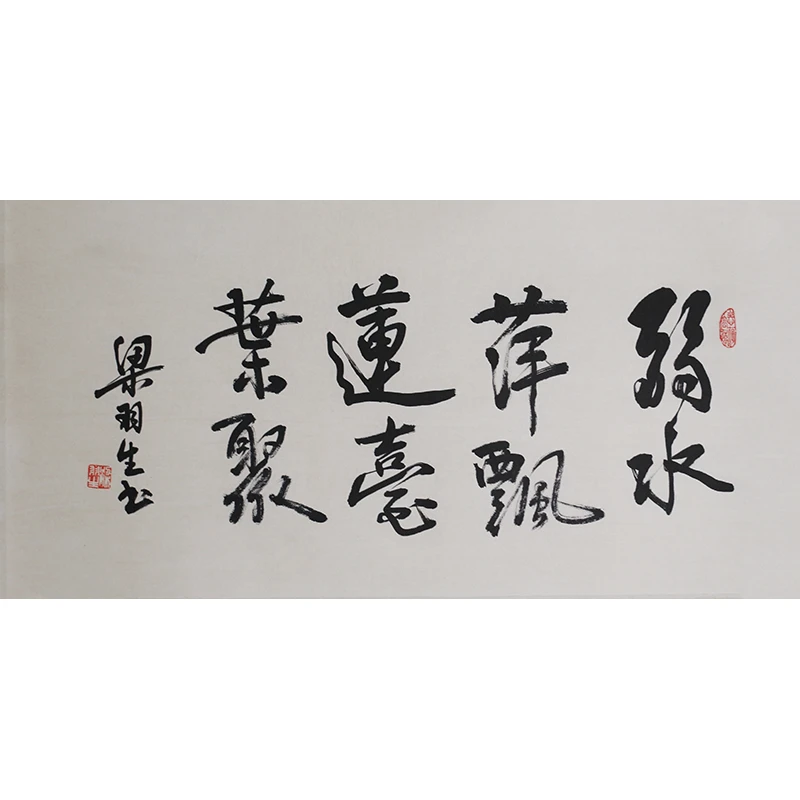 弱水
萍飄
蓮臺
葉聚
梁羽生书